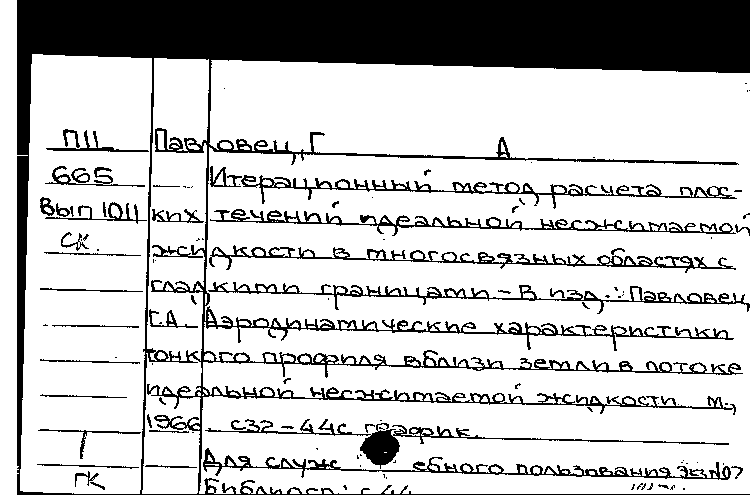 П11 Павловец, Г А
665 Итерационный метод расчета плос-
Вып 1011 ких течений идеальной несжимаемой
СК. жидкости в многосвязных областях с
гладкими границами – В изд.: Павловец,
Г.А. Аэродинамические характеристики
тонкого профиля вблизи земли в потоке
идеальной несжимаемой жидкости. М.,
1966. с32-44с график.
Для служебного пользования Экз №07
ГК Библиогр.: с 44